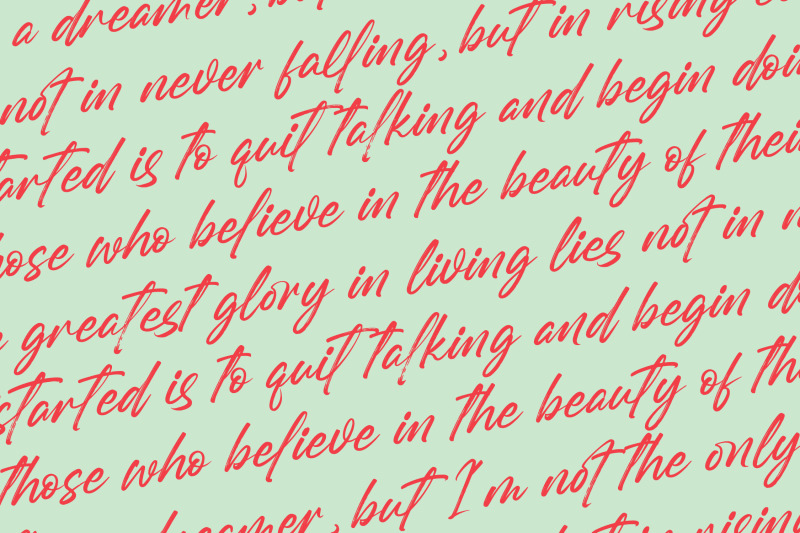 a dreamer, but
not in never falling, but in rising
started is to quit talking and begin doin
those who believe in the beauty of their
greatest glory in living lies not in n
started is to quit talking and begin d
those who believe in the beauty of th
dreamer, but I'm not the only
in rising